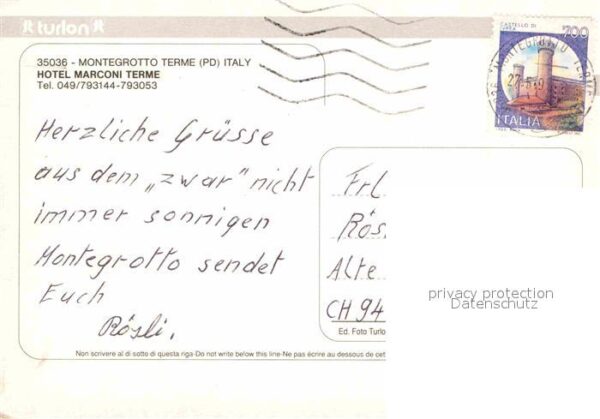 turlon
turlon
CASTELLO DI
700
MONTEGROTTO TERME
ITALIA
35036 - MONTEGROTTO TERME (PD) ITALY
HOTEL MARCONI TERME
Tel. 049/793144-793053
Herzliche Grüsse
aus dem „zwar" nicht
immer sonnigen
Montegrotto sendet
Euch
Rösli.
Frl
Rös
Alte
CH 94
privacy protection
Datenschutz
Ed. Foto Turlo
Non scrivere al di sotto di questa riga-Do not write below this line-Ne pas écrire au dessous de cet